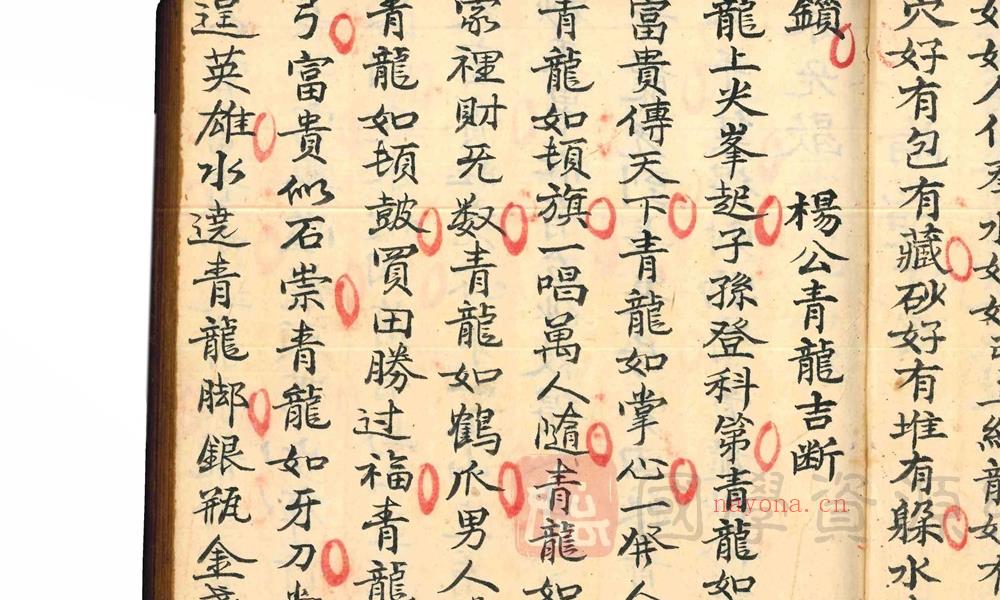 好有包有藏砂好有堆有躲水
楊公青龍吉断
鎖
龍上尖峯起子孫登科第青龍如
富貴傳天下青龍如掌心一發人
青龍如頓旗一唱萬人隨青龍如
家裡財旡数青龍如鶴爪男人
青龍如頓皷買田勝过福青龍
弓富貴似石崇青龍如牙刀
逞英雄水遶青龍脚銀瓶金
國學資源
nayona.cn